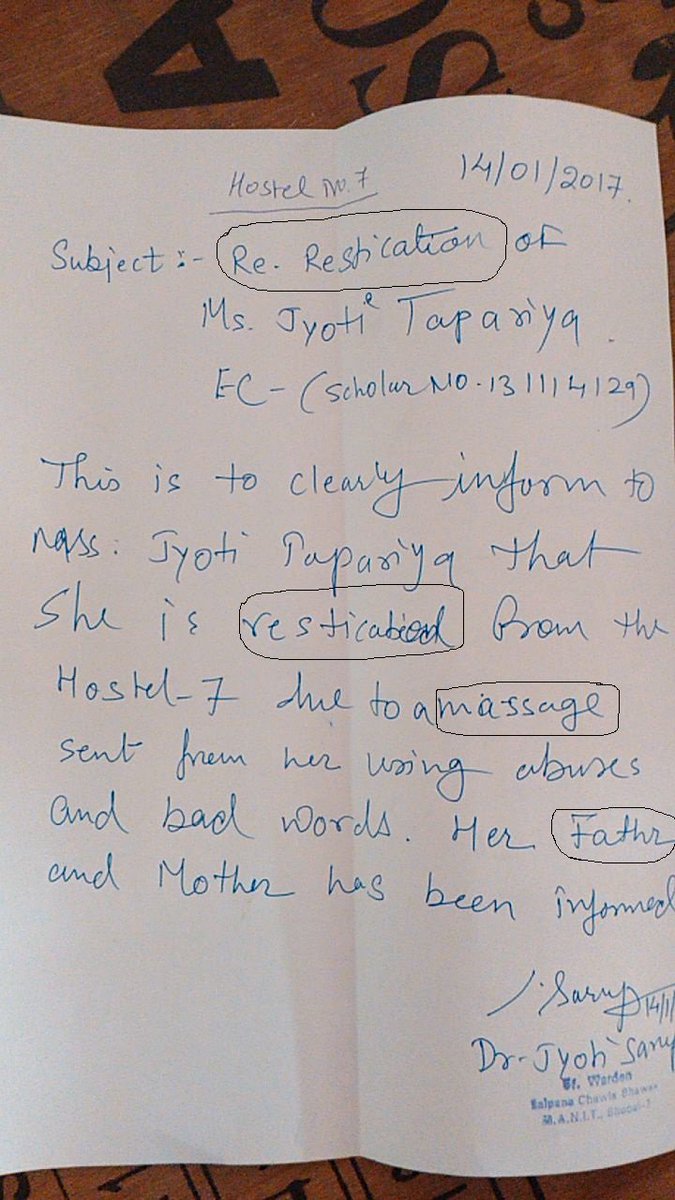 Hostel No. 7
14/01/2017.
Subject :- Re. Restication of
Ms. Jyoti Tapariya.
EC- (Scholar No. 131114129)
This is to clearly inform to
Jyoti Tapariya that
She is resticated from the
Hostel-7 due to a massage
sent from her using abuses
and bad words. Her Fathr
and Mother has been informed
14/1/
Dr. Jyoti Saru
Sf. Warden
Kalpana Chawla Bhawan
M.A.N.I.T., Bhopal-